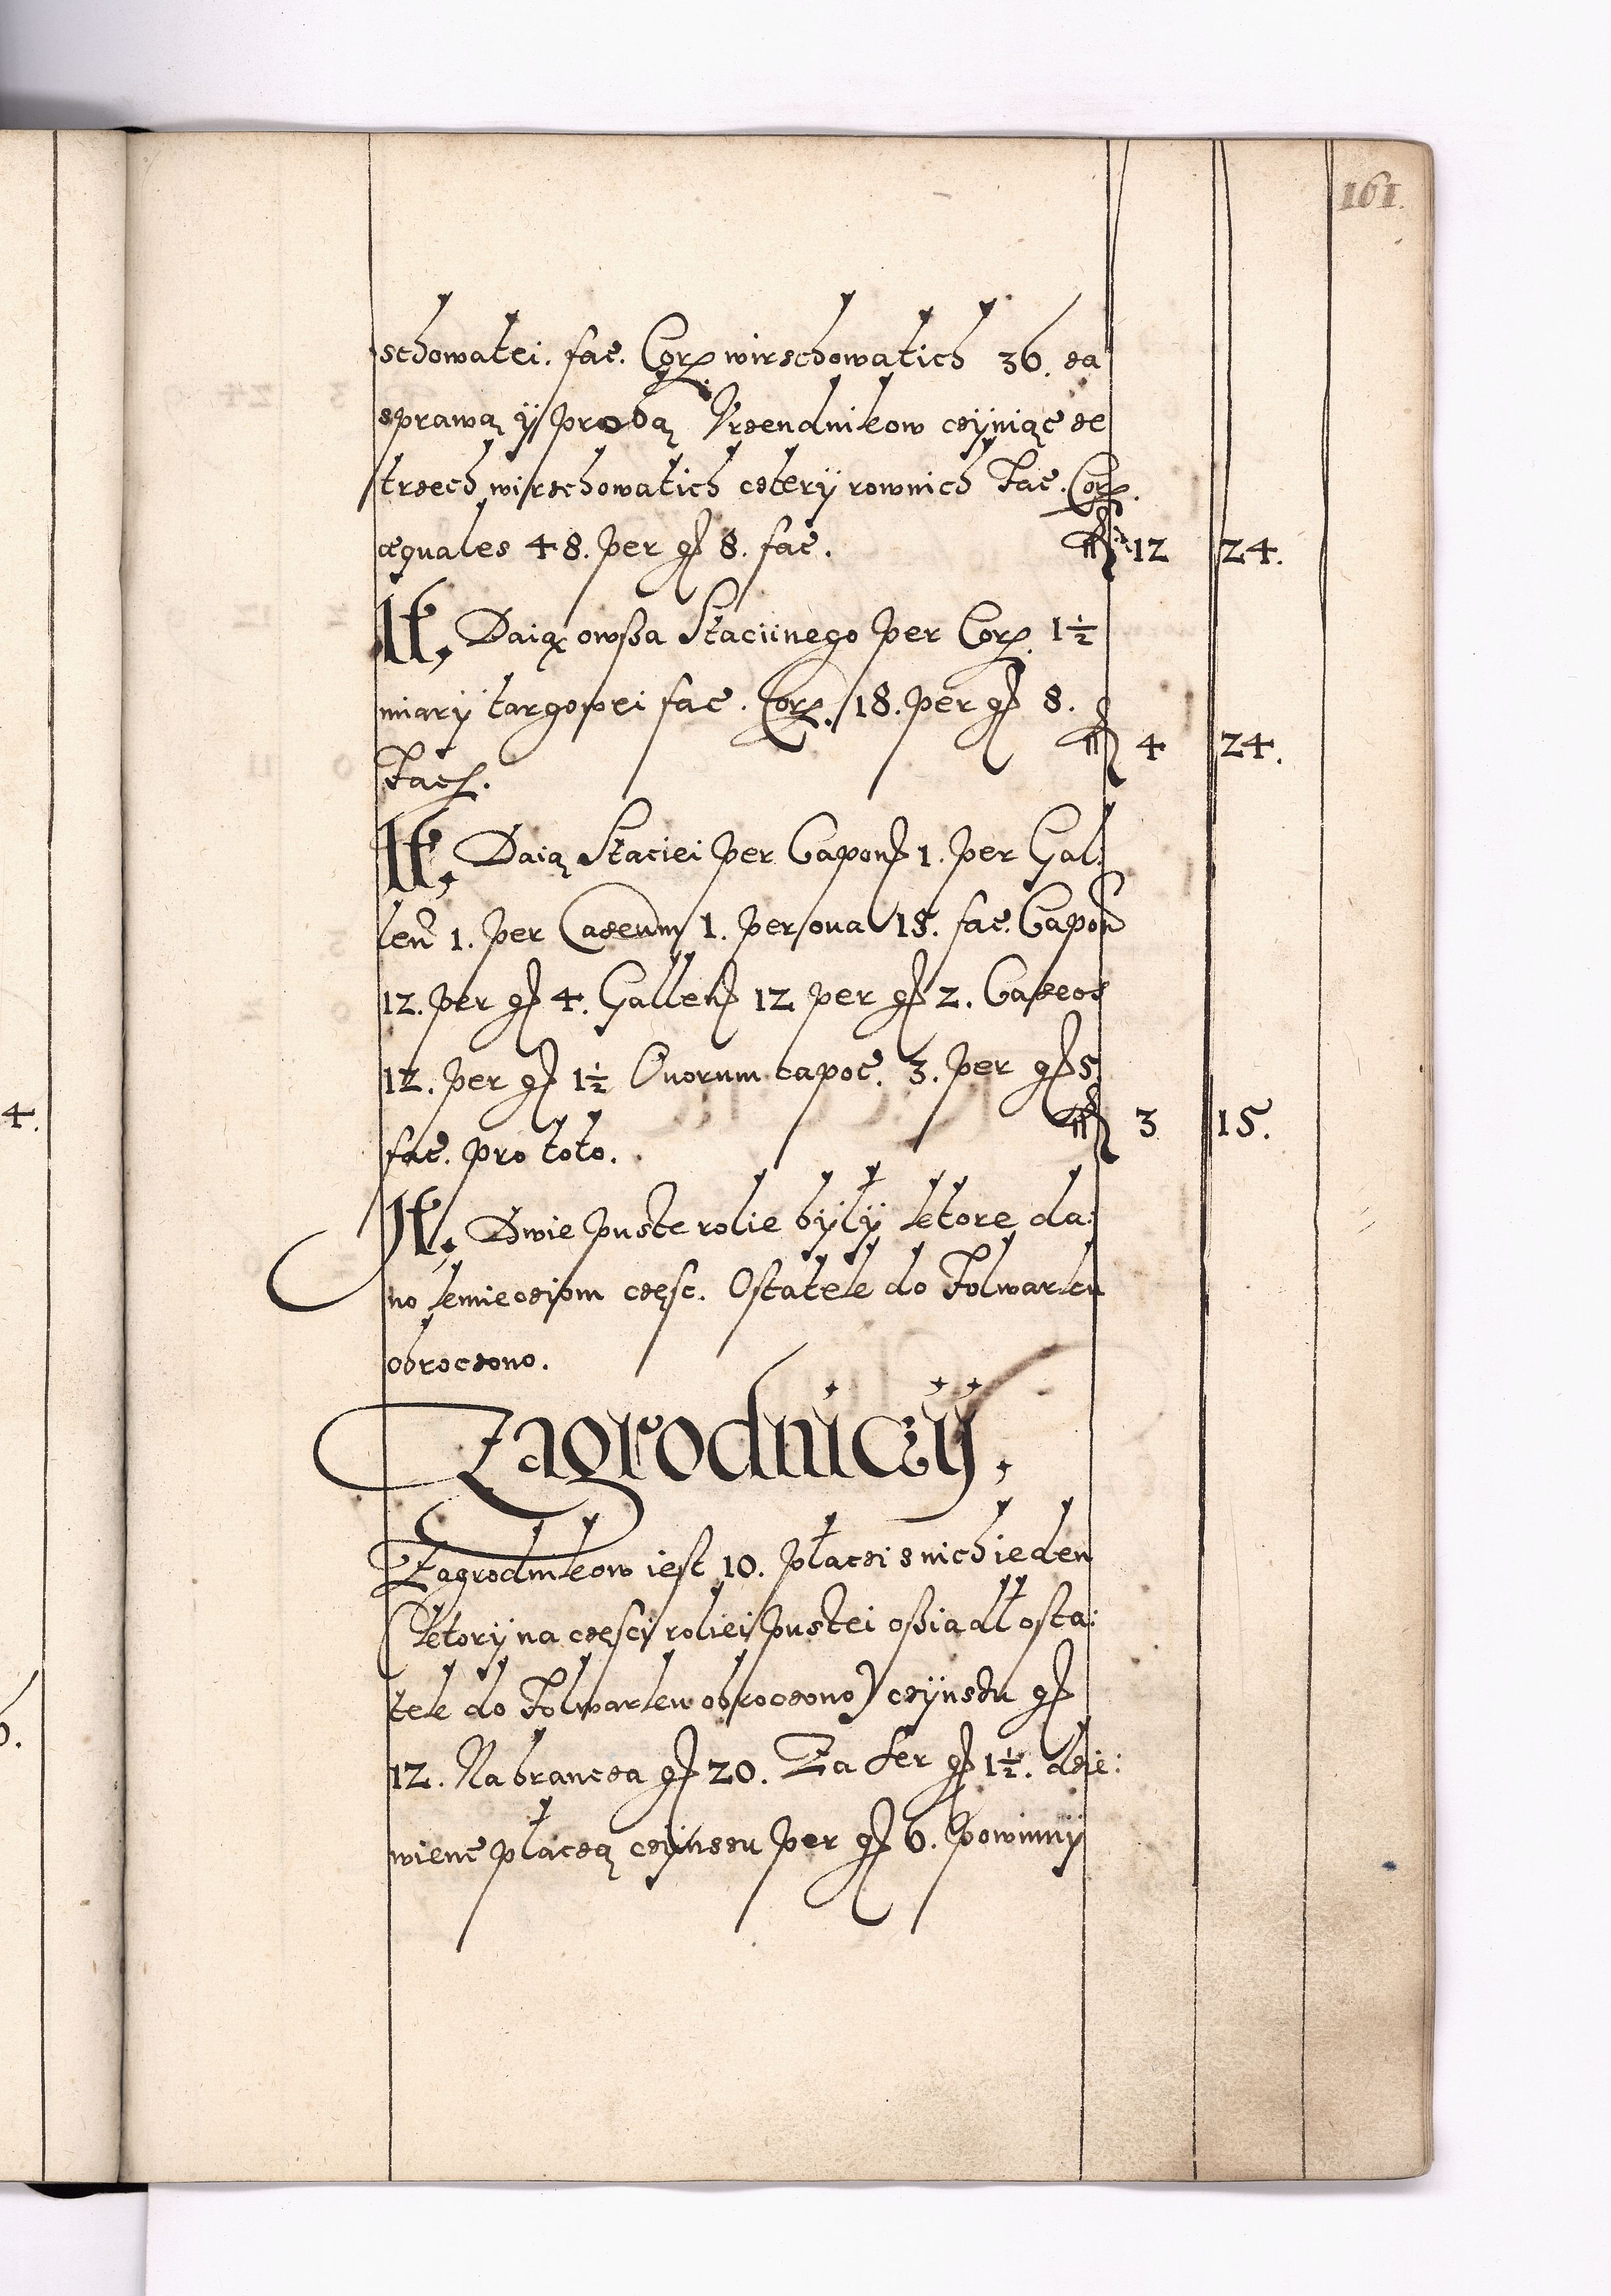 161.
schowatei. fac. Corp wirzchowatich 36. za
sprawą ÿ prośbą Vrzendnikow czÿniąc ze
trzech wirzchowatich czterÿ rownich Fac. Corp.
æquales 48. per gſ 8. fac. 12 24.
It. Daią owßa Staciinego per Corp. 1½
miarÿ targowei fac. Corp. 18. per gſ 8. 4 24.
Fac.
It. Daią Staciei per Capon 1. per Gal:
len 1. per Caseum 1. per oua 15. fac. Capon
12. per gſ 4. Gallen 12 per gſ 2. Caseos
12. per gſ 1½ Ouorum capoc. 3. per gſ 5.
fac. pro toto. 3 15.
It. Dwie puste rolie bÿłÿ ktore da:
no kmieciom częsc. Ostatek do Folwarku
obroczono.
Zagrodniczÿ.
Zagrodnikow iest 10. płaczi z nich ieden
(ktorÿ na częsci roliei pustei oßiadł osta:
tek do Folwarku obroczono) czÿnszu gſ
12. Na brancza gſ 20. Za ser gſ 1½. dzie:
wienc płaczą czÿnszu per gſ 6. powinnÿ
4.